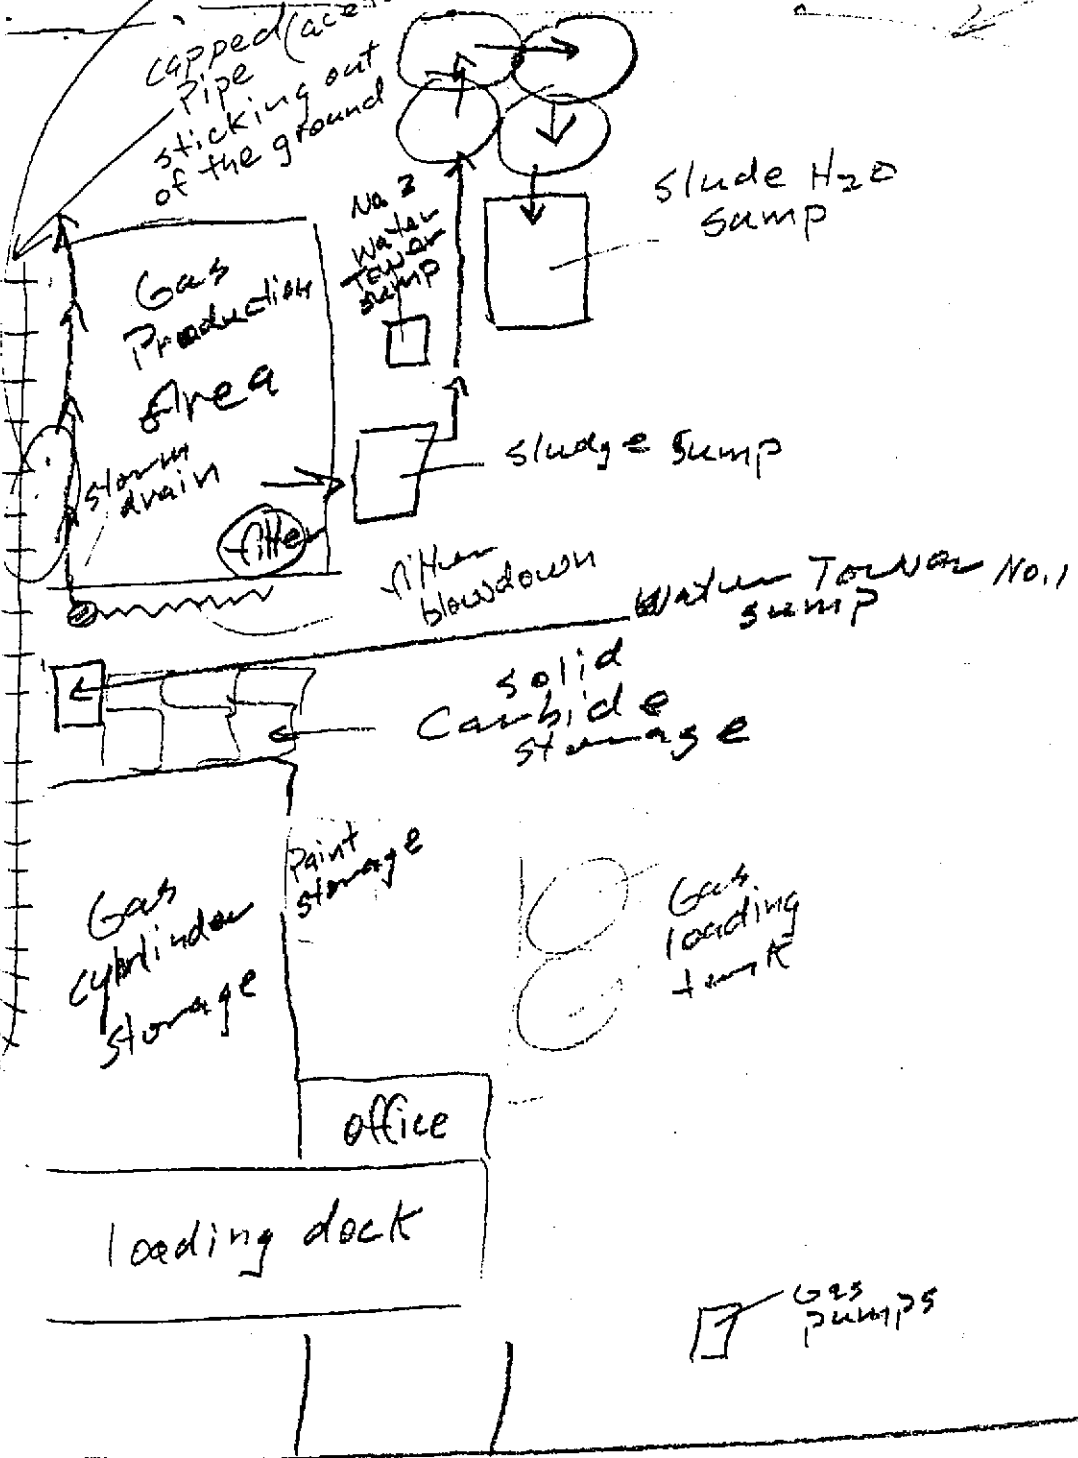 capped (ace
Pipe
sticking out
of the ground
No 2
Water
Tower
sump
Slude H2O
sump
Gas
Production
Area
storm
drain
filter
sludge sump
filter
blowdown
Water Tower No. 1
sump
solid
Carbide
storage
Paint
storage
Gas
cyblinder
storage
Gas
loading
tank
office
loading dock
Gas
pumps